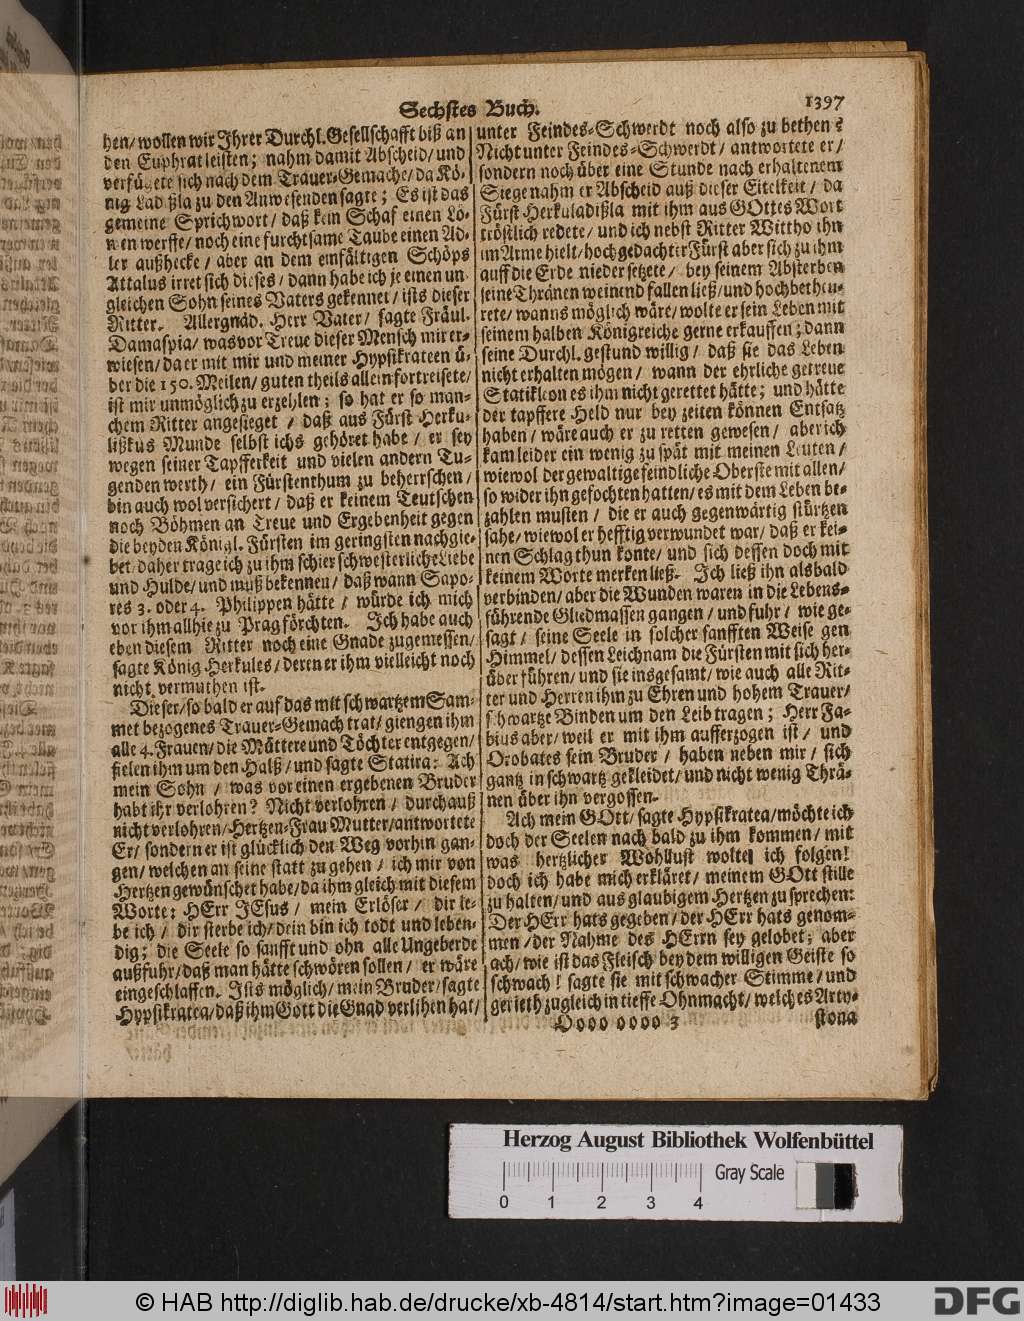 Sechstes Buch.
1397
hen/ wollen wir Ihrer Durchl. Gesellschafft biß an
den Euphrat leisten; nahm damit Abscheid/ und
verfügete sich nach dem Trauer-Gemache/ da Kö-
nig Ladißla zu den Anwesenden sagte; Es ist das
gemeine Sprichwort/ daß kein Schaf einen Lö-
wen werffe/ noch eine furchtsame Taube einen Ad-
ler außhecke/ aber an dem einfältigen Schöps
Attalus irret sich dieses/ dann habe ich je einen un
gleichen Sohn seines Vaters gekennet/ ists dieser
Ritter. Allergnäd. Herr Vater/ sagte Fräul.
Damaspia/ was vor Treue dieser Mensch mir er-
wiesen/ da er mit mir und meiner Hypsikrateen ü-
ber die 150. Meilen/ guten theils allein fortreisete/
ist mir unmöglich zu erzehlen; so hat er so man-
chem Ritter angesieget/ daß aus Fürst Herku-
lißkus Munde selbst ichs gehöret habe/ er sey
wegen seiner Tapfferkeit und vielen andern Tu-
genden werth/ ein Fürstenthum zu beherrschen/
bin auch wol versichert/ daß er keinem Teutschen
noch Böhmen an Treue und Ergebenheit gegen
die beyden Königl. Fürsten im geringsten nachgie-
bet/ daher trage ich zu ihm schier schwesterliche Liebe
und Hulde/ und muß bekennen/ daß wann Sapo-
res 3. oder 4. Philippen hätte/ würde ich mich
vor ihm allhie zu Prag förchten. Ich habe auch
eben diesem Ritter noch eine Gnade zugemessen/
sagte König Herkules/ deren er ihm vielleicht noch
nicht vermuthen ist.
Dieser/ so bald er auf das mit schwartzem Sam-
met bezogenes Trauer-Gemach trat/ giengen ihm
alle 4. Frauen/ die Müttere und Töchter entgegen/
fielen ihm um den Halß/ und sagte Statira: Ach
mein Sohn/ was vor einen ergebenen Bruder
habt ihr verlohren? Nicht verlohren/ durchauß
nicht verlohren/ Hertzen-Frau Mutter/ antwortete
Er/ sondern er ist glücklich den Weg vorhin gan-
gen/ welchen an seine statt zu gehen/ ich mir von
Hertzen gewünschet habe/ da ihm gleich mit diesem
Worte: HErr JEsus/ mein Erlöser/ dir le-
be ich/ dir sterbe ich/ dein bin ich todt und leben-
dig; die Seele so sanfft und ohn alle Ungeberde
außfuhr/ daß man hätte schwören sollen/ er wäre
eingeschlaffen. Ists möglich/ mein Bruder/ sagte
Hypsikratea/ daß ihm Gott die Gnad verlihen hat/
unter Feindes-Schwerdt noch also zu bethen?
Nicht unter Feindes-Schwerdt/ antwortete er/
sondern noch über eine Stunde nach erhaltenem
Siege nahm er Abscheid auß dieser Eitelkeit/ da
Fürst Herkuladißla mit ihm aus GOttes Wort
tröstlich redete/ und ich nebst Ritter Wittho ihn
im Arme hielt/ hochgedachter Fürst aber sich zu ihm
auff die Erde nieder setzete/ bey seinem Absterben
seine Thränen weinend fallen ließ/ und hoch betheu-
rete/ wanns möglich wäre/ wolte er sein Leben mit
seinem halben Königreiche gerne erkauffen; dann
seine Durchl. gestund willig/ daß sie das Leben
nicht erhalten mögen/ wann der ehrliche getreue
Statikleon es ihm nicht gerettet hätte; und hätte
der tapffere Held nur bey zeiten können Entsatz
haben/ wäre auch er zu retten gewesen/ aber ich
kam leider ein wenig zu spät mit meinen Leuten/
wiewol der gewaltige feindliche Oberste mit allen/
so wider ihn gefochten hatten/ es mit dem Leben be-
zahlen musten/ die er auch gegenwärtig stürtzen
sahe/ wiewol er hefftig verwundet war/ daß er kei-
nen Schlag thun konte/ und sich dessen doch mit
keinem Worte mercken ließ. Ich ließ ihn alsbald
verbinden/ aber die Wunden waren in die Lebens-
führende Gliedmassen gangen/ und fuhr/ wie ge-
sagt/ seine Seele in solcher sanfften Weise gen
Himmel/ dessen Leichnam die Fürsten mit sich her-
über führen/ und sie insgesamt/ wie auch alle Rit-
ter und Herren ihm zu Ehren und hohem Trauer/
schwartze Binden um den Leib tragen; Herr Fa-
bius aber/ weil er mit ihm aufferzogen ist/ und
Orobates sein Bruder/ haben neben mir/ sich
gantz in schwartz gekleidet/ und nicht wenig Thrä-
nen über ihn vergossen.
Ach mein GOtt/ sagte Hypsikratea/ möchte ich
doch der Seelen nach bald zu ihm kommen/ mit
was hertzlicher Wohllust wolte ich folgen!
doch ich habe mich erkläret/ meinem GOtt stille
zu halten/ und aus glaubigem Hertzen zu sprechen:
Der HErr hats gegeben/ der HErr hats genom-
men/ der Nahme des HErrn sey gelobet; aber
ach/ wie ist das Fleisch bey dem willigen Geiste so
schwach! sagte sie mit schwacher Stimme/ und
gerieth zugleich in tieffe Ohnmacht/ welches Arty-
Oooo oooo 3
stona
Herzog August Bibliothek Wolfenbüttel
Gray Scale
0 1 2 3 4
© HAB http://diglib.hab.de/drucke/xb-4814/start.htm?image=01433
DFG